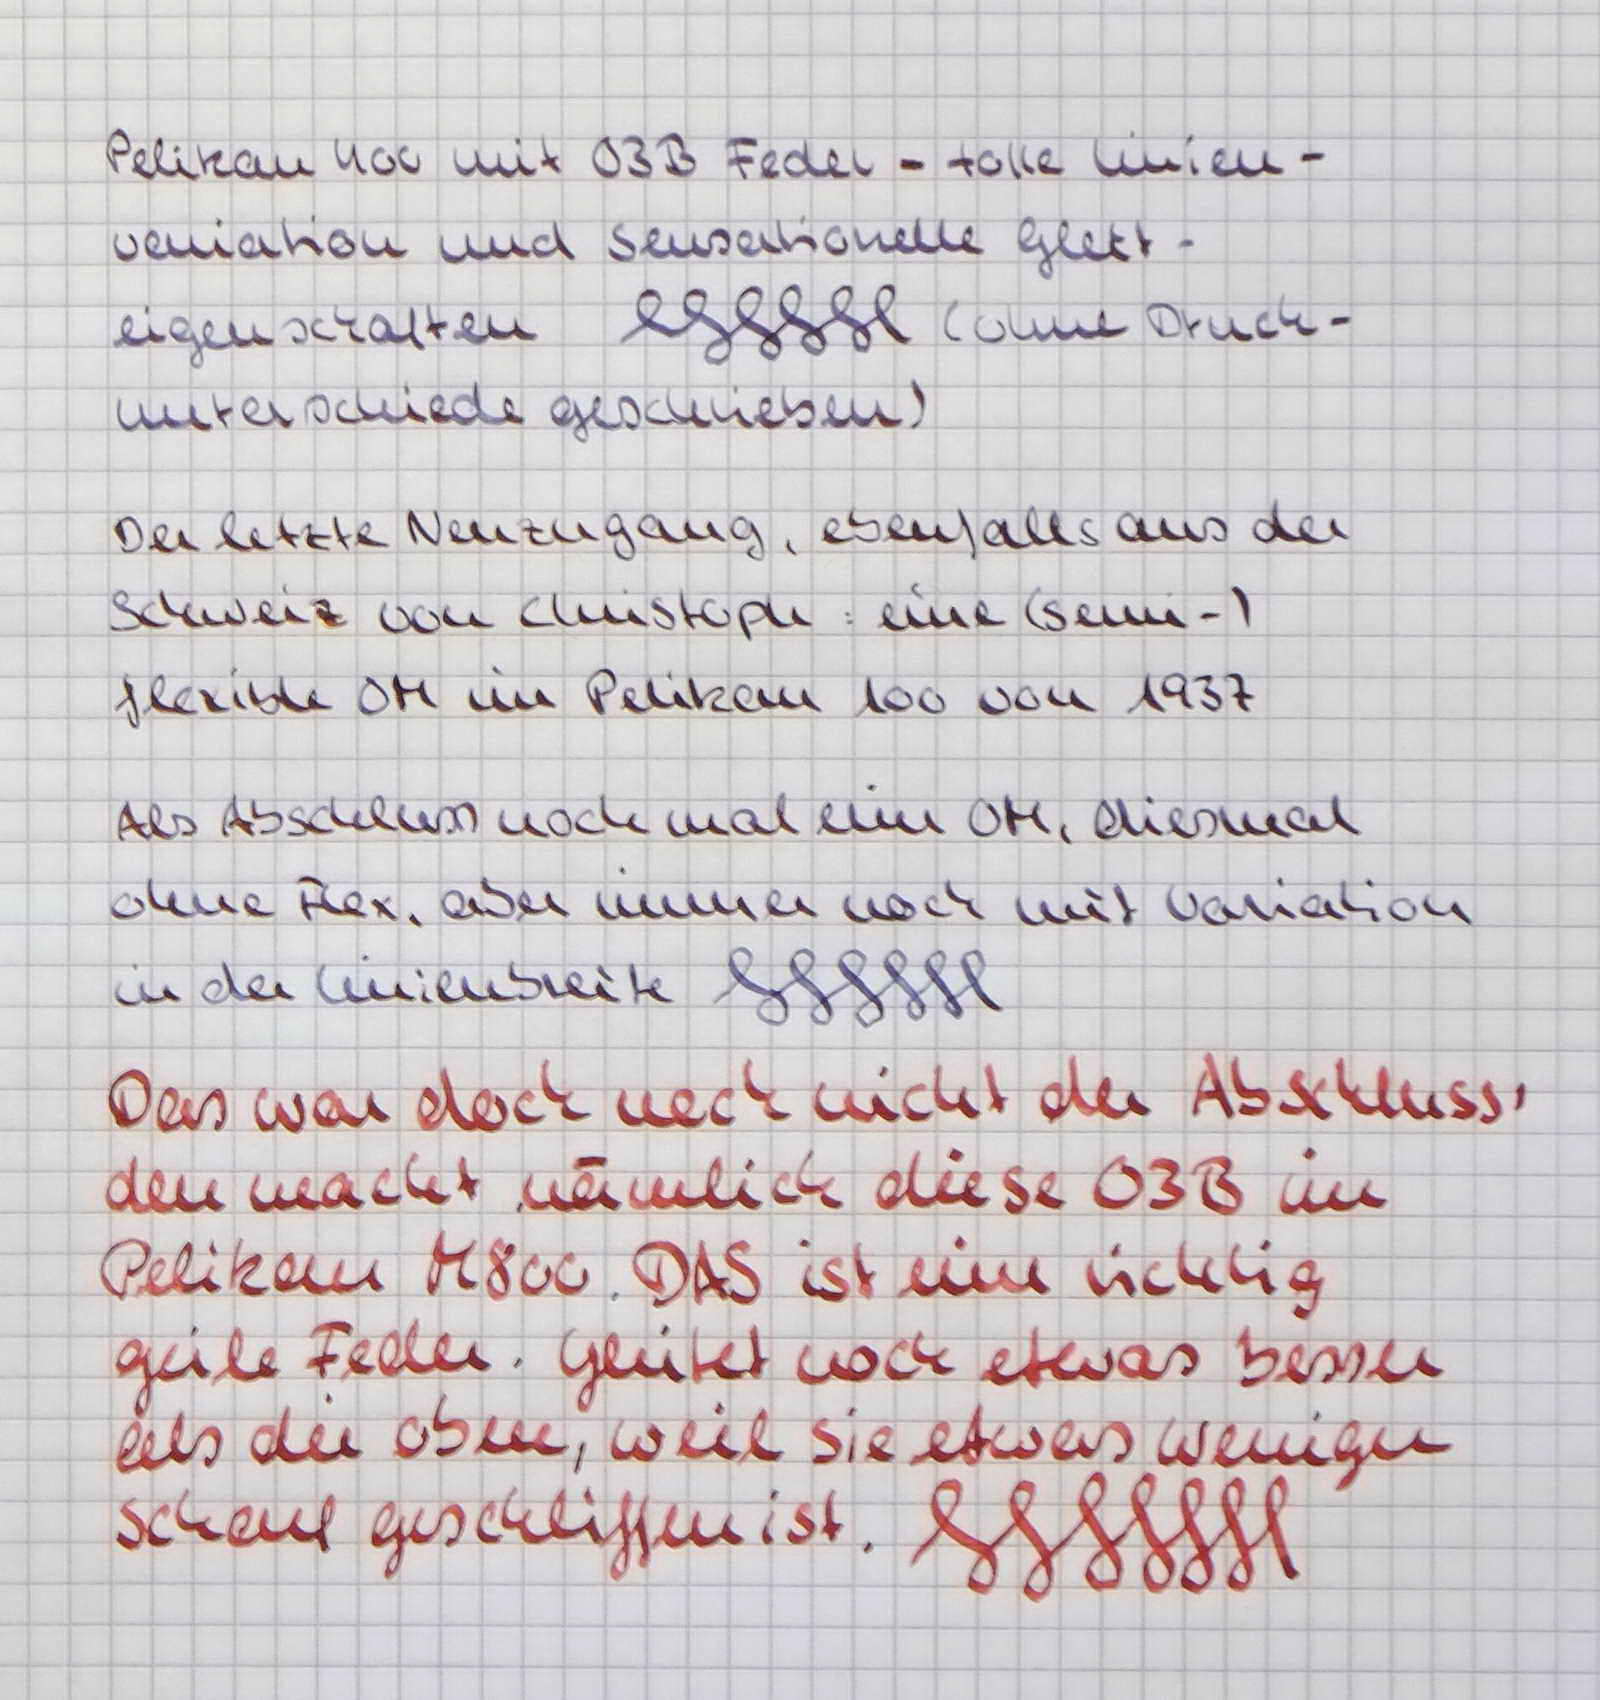 Pelikan 400 mit O3B Feder - tolle Linien-
variation und sensationelle Gleit-
eigenschaften (ohne Druck-
unterschiede geschrieben)
Der letzte Neuzugang, ebenfalls aus der
Schweiz von Christoph: eine (semi-)
flexible OM im Pelikan 100 von 1937
Als Abschluss noch mal eine OM, diesmal
ohne Flex, aber immer noch mit Variation
in der Linienbreite
Das war doch noch nicht der Abschluss,
den macht nämlich diese O3B im
Pelikan M800. DAS ist eine richtig
geile Feder. Gleitet noch etwas besser
als die oben, weil sie etwas weniger
scharf geschliffen ist.